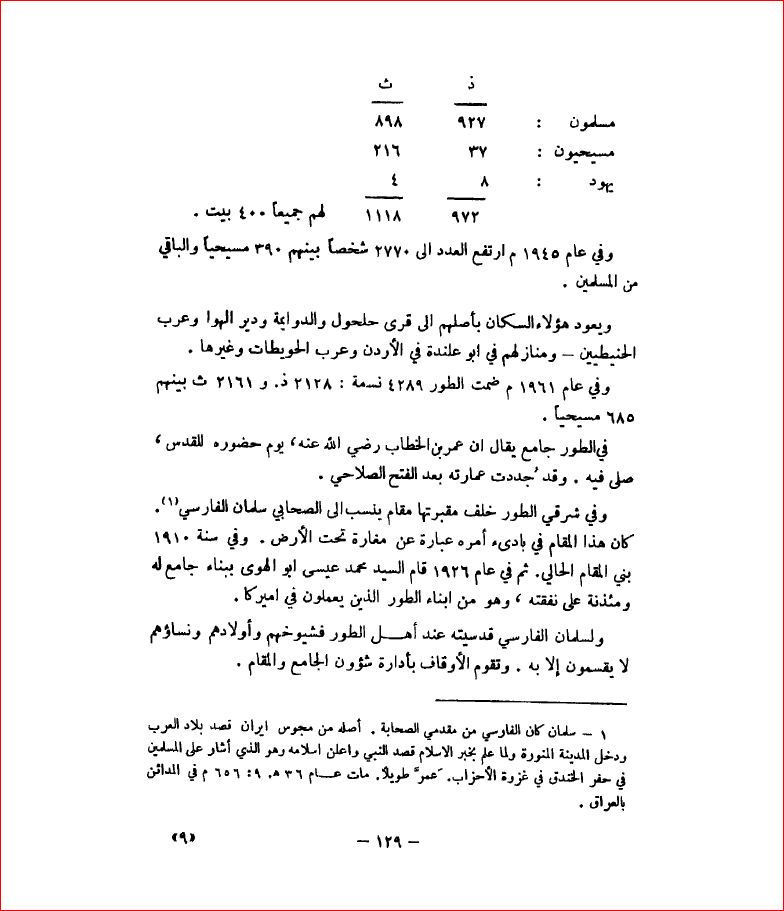 ذ ث
مسلمون : ٩٢٧ ٨٩٨
مسيحيون : ٣٧ ٢١٦
يهود : ٨ ٤
٩٧٢ ١١١٨ لهم جميعاً ٤٠٠ بيت .
وفي عام ١٩٤٥ م ارتفع العدد الى ٢٧٧٠ شخصاً بينهم ٣٩٠ مسيحياً والباقي
من المسلمين .
ويعود هؤلاء السكان بأصلهم الى قرى حلحول والدوايمة ودير الهوا وعرب
الحنيطيين – ومنازلهم في ابو علندة في الأردن وعرب الحويطات وغيرها .
وفي عام ١٩٦١ م ضمت الطور ٤٢٨٩ نسمة : ٢١٢٨ ذ. و ٢١٦١ ث بينهم
٦٨٥ مسيحياً .
في الطور جامع يقال ان عمر بن الخطاب رضي الله عنه، يوم حضوره للقدس ،
صلى فيه . وقد جُددت عمارته بعد الفتح الصلاحي .
وفي شرقي الطور خلف مقبرتها مقام ينسب الى الصحابي سلمان الفارسي(١).
كان هذا المقام في بادىء أمره عبارة عن مغارة تحت الأرض . وفي سنة ١٩١٠
بني المقام الحالي. ثم في عام ١٩٢٦ قام السيد محمد عيسى ابو الهوى ببناء جامع له
ومئذنة على نفقته ، وهو من ابناء الطور الذين يعملون في اميركا .
ولسلمان الفارسي قدسيته عند أهــل الطور فشيوخهم وأولادهم ونساؤهم
لا يقسمون إلا به . وتقوم الأوقاف بأدارة شؤون الجامع والمقام .
١ – سلمان كان الفارسي من مقدمي الصحابة . أصله من مجوس ايران قصد بلاد العرب
ودخل المدينة المنورة ولما علم بخبر الاسلام قصد النبي واعلن اسلامه وهو الذي أشار على المسلمين
في حفر الخندق في غزوة الأحزاب. عَمرَّ طويلاً. مات عــام ٣٦ هـ. ٩: ٦٥٦ م في المدائن
بالعراق .
– ١٢٩ – «٩»